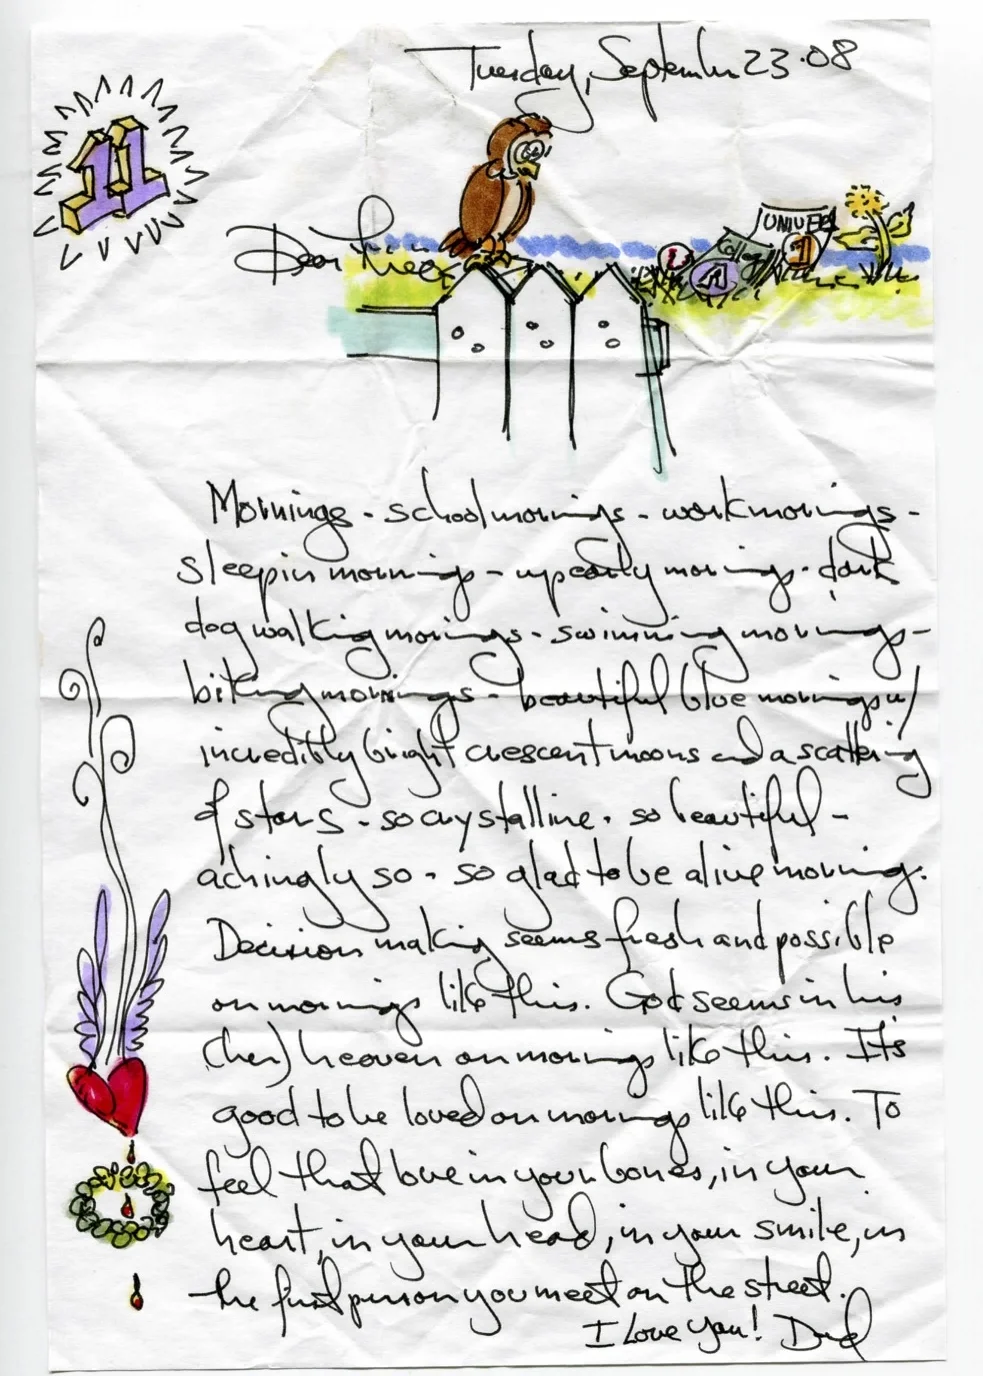 Tuesday, September 23.08
11
Dear
College
UNIVER
1
A
1
Mornings - school mornings - work mornings -
sleep in mornings - up early mornings - dark
dog walking mornings - swimming mornings -
biking mornings - beautiful blue mornings w/
incredibly bright crescent moons and a scattering
of stars - so crystalline - so beautiful -
achingly so - so glad to be alive morning.
Decision making seems fresh and possible
on mornings like this. God seems in his
(her) heaven on mornings like this. It's
good to be loved on mornings like this. To
feel that love in your bones, in your
heart, in your head, in your smile, in
the first person you meet on the street.
I Love You! Dad